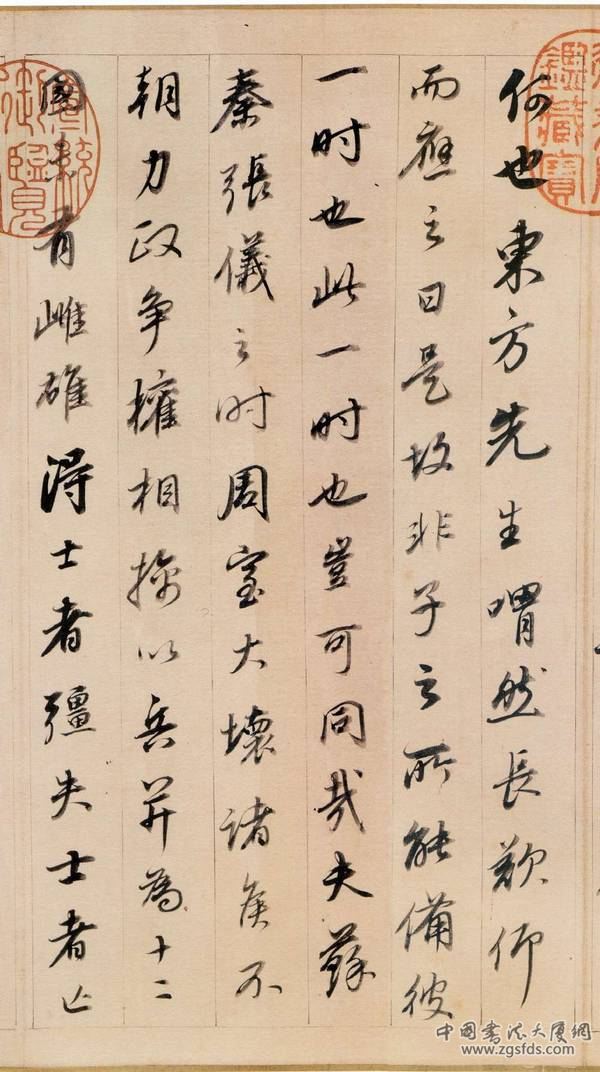 何也東方先生喟然長歎仰
而應之曰是故非子之所能備彼
一时也此一时也豈可同哉夫蘇
秦張儀之时周室大壞諸侯不
朝力政争權相擒以兵并為十二
國未有雌雄得士者彊失士者亡
鑑藏寶
御覽
中国書法大厦網
www.zgsfds.com